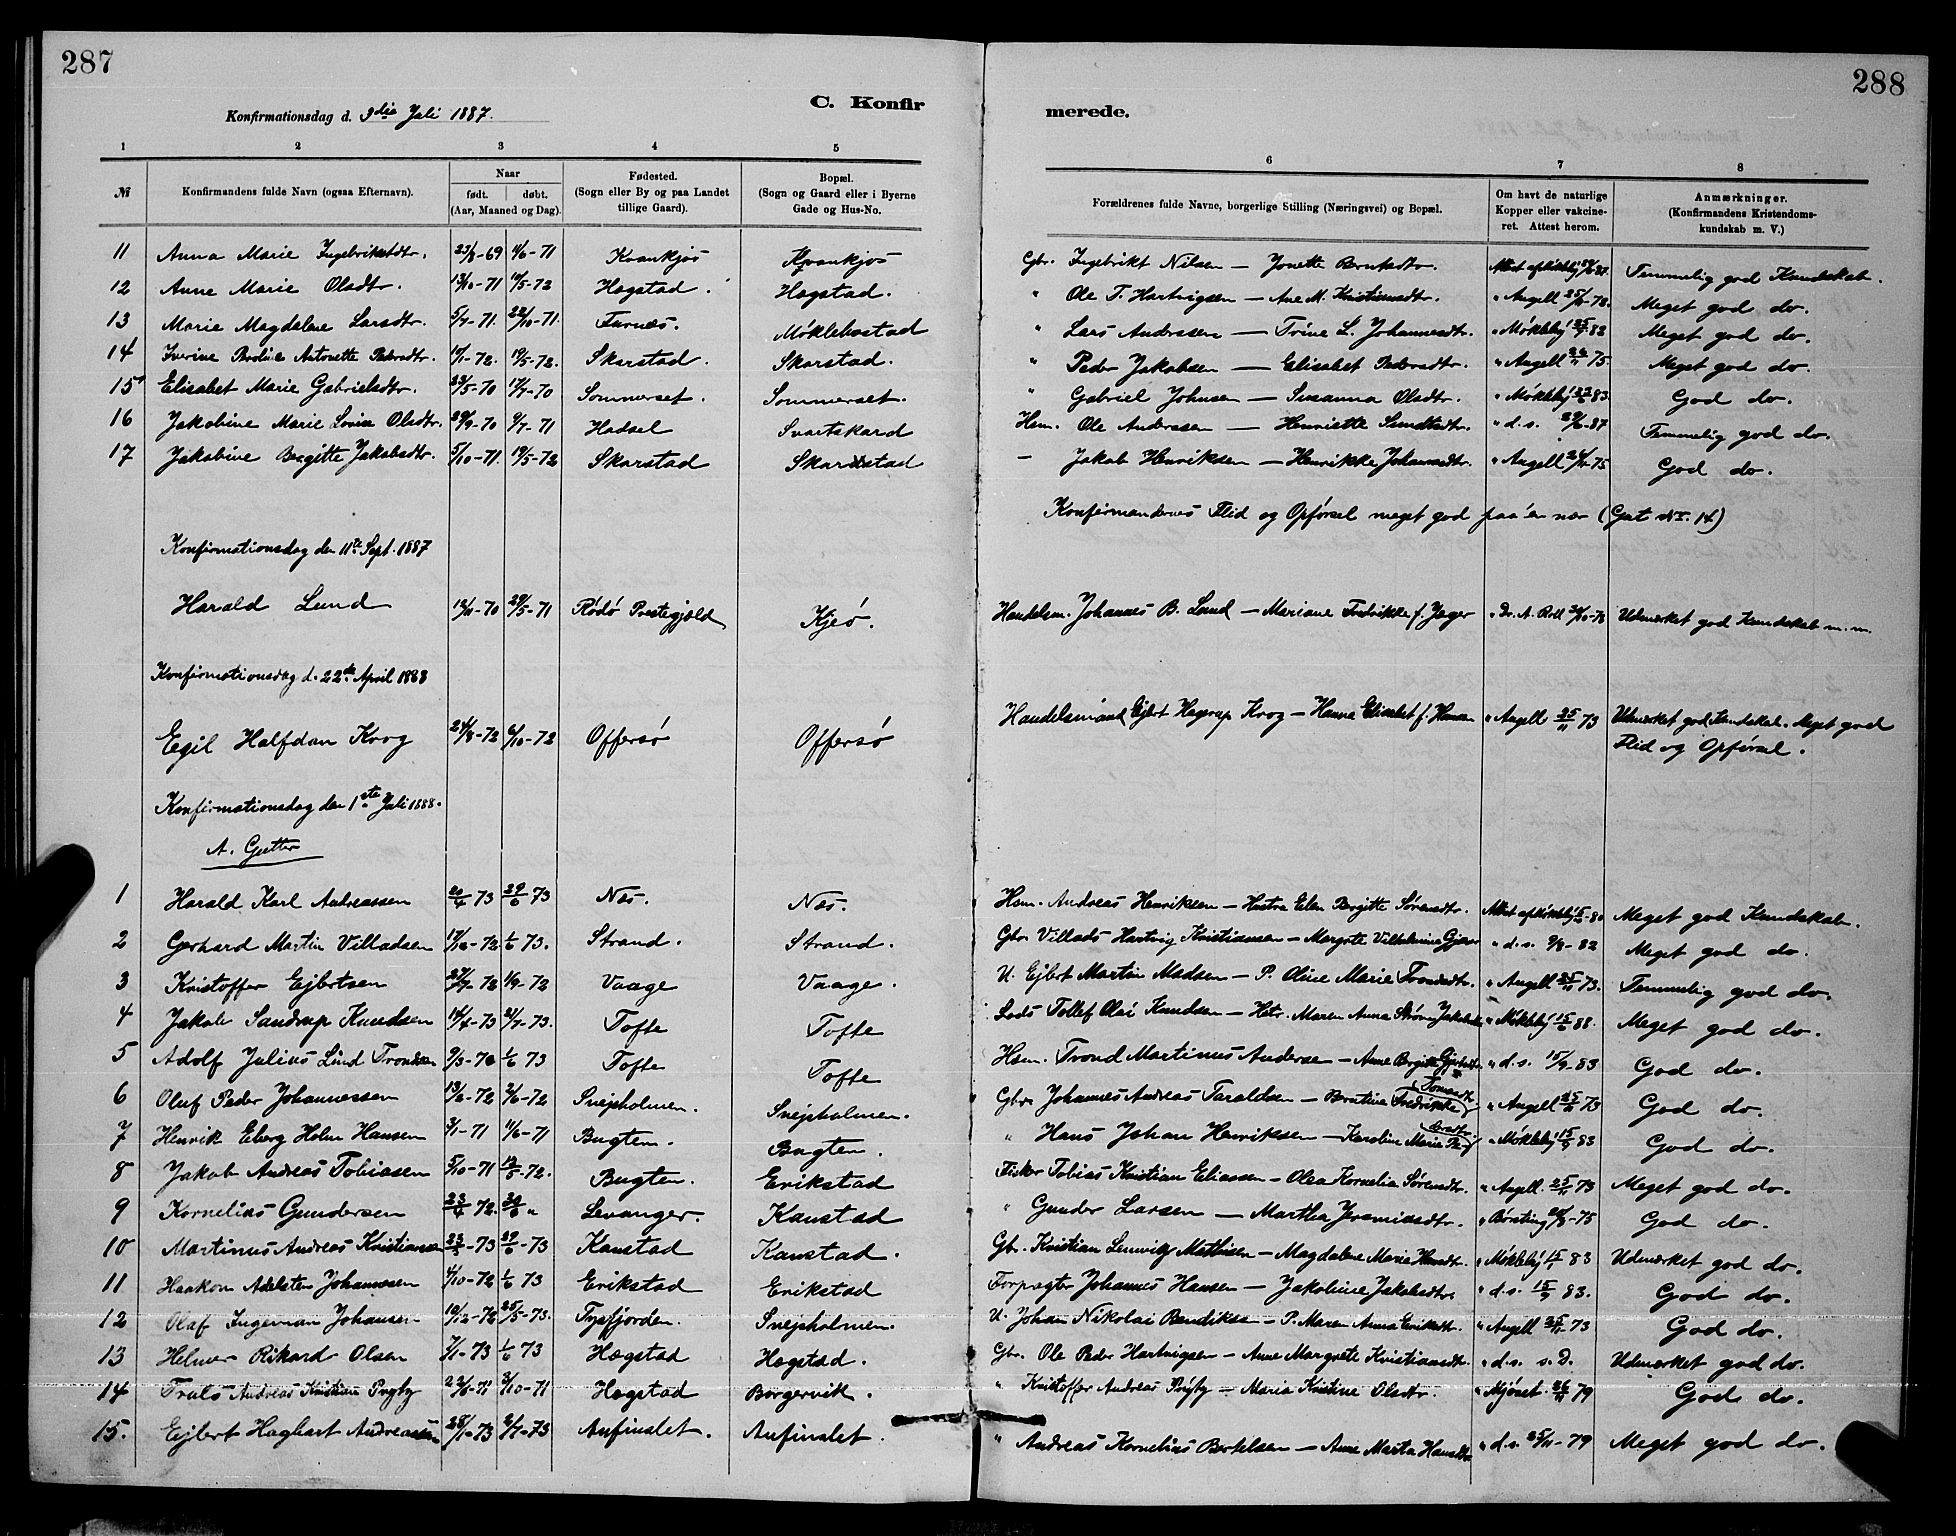 287
288
C. Konfir
merede.
Konfirmationsdag d. 9die Juli 1887.
1 2 3 4 5 6 7 8
№ Konfirmandens fulde Navn (ogsaa Efternavn). Naar født. døbt. (Aar, Maaned og Dag). Fødested. (Sogn eller By og paa Landet tillige Gaard). Bopæl. (Sogn og Gaard eller i Byerne Gade og Hus-No. Forældrenes fulde Navne, borgerlige Stilling (Næringsvei) og Bopæl. Om havt de naturlige Kopper eller vakcineret. Attest herom. Anmærkninger. (Konfirmandens Kristendomskundskab m. V.)
11 Anna Marie Ingebriktsdtr. 23/8-69 4/6-71 Kvankjos Kvankjos Gbr. Ingebrikt Nilsen — Jonette Berntsdtr. Temmelig god Kundskab.
12 Anne Marie Olsdtr. 13/10-71 19/5-72 Hægstad. Hægstad. " Ole T. Hartvigsen — Ane M. Kristiansdtr. " Angell Meget god do.
13 Marie Magdalene Larsdtr. 5/7-71. 22/10-71. Furnæs. Møklebostad " Lars Anderssen — Trine L. Johannesdtr. " Møkleby 82 Meget god do.
14 Iverine Antonette Pedersdtr. 72. 19/5-72. Skarstad. Skarstad. " Peder Jakobsen — Elisabet Pedersdtr. " Angell 75. Meget god do.
15 Elisabet Marie Gabrielsdtr. 23/5-70 17/7-70 Sommerset. Sommerset. " Gabriel Johnsen — Susanna Olsdtr. " Møkleby 83. God do.
16 Jakobine Marie Lovise Olsdtr. 29/9-70 9/7-71 Hadsel Svartskard Hsm. Ole Anderssen — Henriette " d.s. 87 Temmelig god do.
17 Jakobine Bergitte Jakobsdtr. 5/10-71. 19/5-72 Skarstad Skarstad — Jakob Henriksen — Henrikke Johannsdtr. " Angell 75 God do.
Konfirmandernes Flid og Opførsel meget god paa én nær (Gut № 14)
Konfirmationsdag den 11te Sept. 1887
Harald Lund 12/11-70 29/5-71 Rødø Prestegjæld Kjeø. Handelsm. Johannes B. Lund — Mariane Fredrikke f. Jæger " Dr. A. Roll Udmærket god Kundskab m.m.
Konfirmationsdag d. 22de April 1888
Egil Halfdan Krog 24/8-72 6/10-72 Offersø Offersø Handelsmand Ejlert Hagerup Krog — Hanna Elisabet f. Hansen " Angell 25/11 73 Udmærket god Kundskab. Meget god
Flid og Opførsel.
Konfirmationsdag den 1ste Juli 1888.
A. Gutter
1 Harald Karl Andreassen 20/4 73 29/6 73 Næs. Næs. Hsm. Andreas Henriksen — Hustru Elen Bergitte Sørensdtr. Meget god Kundskab.
2 Gerhard Martin Villadsen 17/10-72 1/6 73. Strand. Strand. Gbr. Villads Hartvig Kristiansen — Margrete Vilhelmine " d.s. 9/8-82 Meget god do.
3 Kristoffer Ejlertsen 27/7-72 1/9-72 Vaage Vaage. U. Ejlert Martin Madsen — P. Oline Marie Trondsdtr. " Angell 25/11 73. Temmelig god do.
4 Jakob Sandrup Knudsen 14/4-73 27/7-73. Tofte Tofte Lods Tollef Olai Knudsen — Hstr. Maren Anna " Møkleby 88. Meget god do.
5 Adolf Julius Lind Trondsen 1/6 73 Tofte Tofte Hsm. Trond Martinus Andersen — Anne Bergitte " d.s. 15/9-83 God do.
6 Oluf Peder Johannessen 13/6-72 2/6-72 Snejsholmen. Snejsholmen. Gbr. Johannes Andreas Taraldsen — Berntine Fredrikke Tomasdtr. " Angell 25/11 73 God do.
7 Henrik Eberg Holm Hansen 3/1-71 11/6-71 Bugten. Bugten. " Hans Johan Henriksen — Karoline Marie " Møkleby 15/9 83 God do.
8 Jakob Andreas Tobiasen 5/10-71 12/5-72. Bugten. Erikstad Fisker Tobias Kristian Eliassen — Olea Kornelia Sørensdtr. " Angell. 25/11 73 Meget god do.
9 Kornelius Gundersen 23/4 72. Levanger. Kanstad " Gunder Larsen — Martha Jeremiasdtr. 75 God do.
10 Martinus Andreas Kristiansen 73 29/6-73 Kanstad Kanstad. Gbr. Kristian Lemvig Mathisen — Magdalene Marie " Møkleby 83 Udmærket god do.
11 Haakon Adelsten Johannessen 4/10-72 1/6 73 Erikstad Erikstad Forpagter Johannes Hansen — Jakobine Jakobsdtr. " d.s. 15/9 83. God do.
12 Olaf Ingeman Johansen 10/12-72 25/5-73. Tysfjorden. Snejsholmen. U. Johan Nikolai Bendiksen — P. Maren Anna Eriksdtr. " Angell 25/11-73 God do.
13 Helmer Rikard Olsen 7/1-73 1/6 73 Hægstad Hægstad. Gbr. Ole Peder Hartvigsen — Anne Margrete Kristiansdtr. " d.s. s.D. Udmærket god do.
14 Truls Andreas Kristian 3/10-71 Hægstad Borgervik. " Kristoffer Andreas — Maria Kristine Olsdtr. " Mjøset. 79 God do.
15. Ejlert Hagbart Andreassen 28/1-73 2/7-73 Aufinslet. Aufinslet. " Andreas Kornelius Bertelsen — Anne Marta Hansdtr. " d.s. 25/11-79 Meget god do.